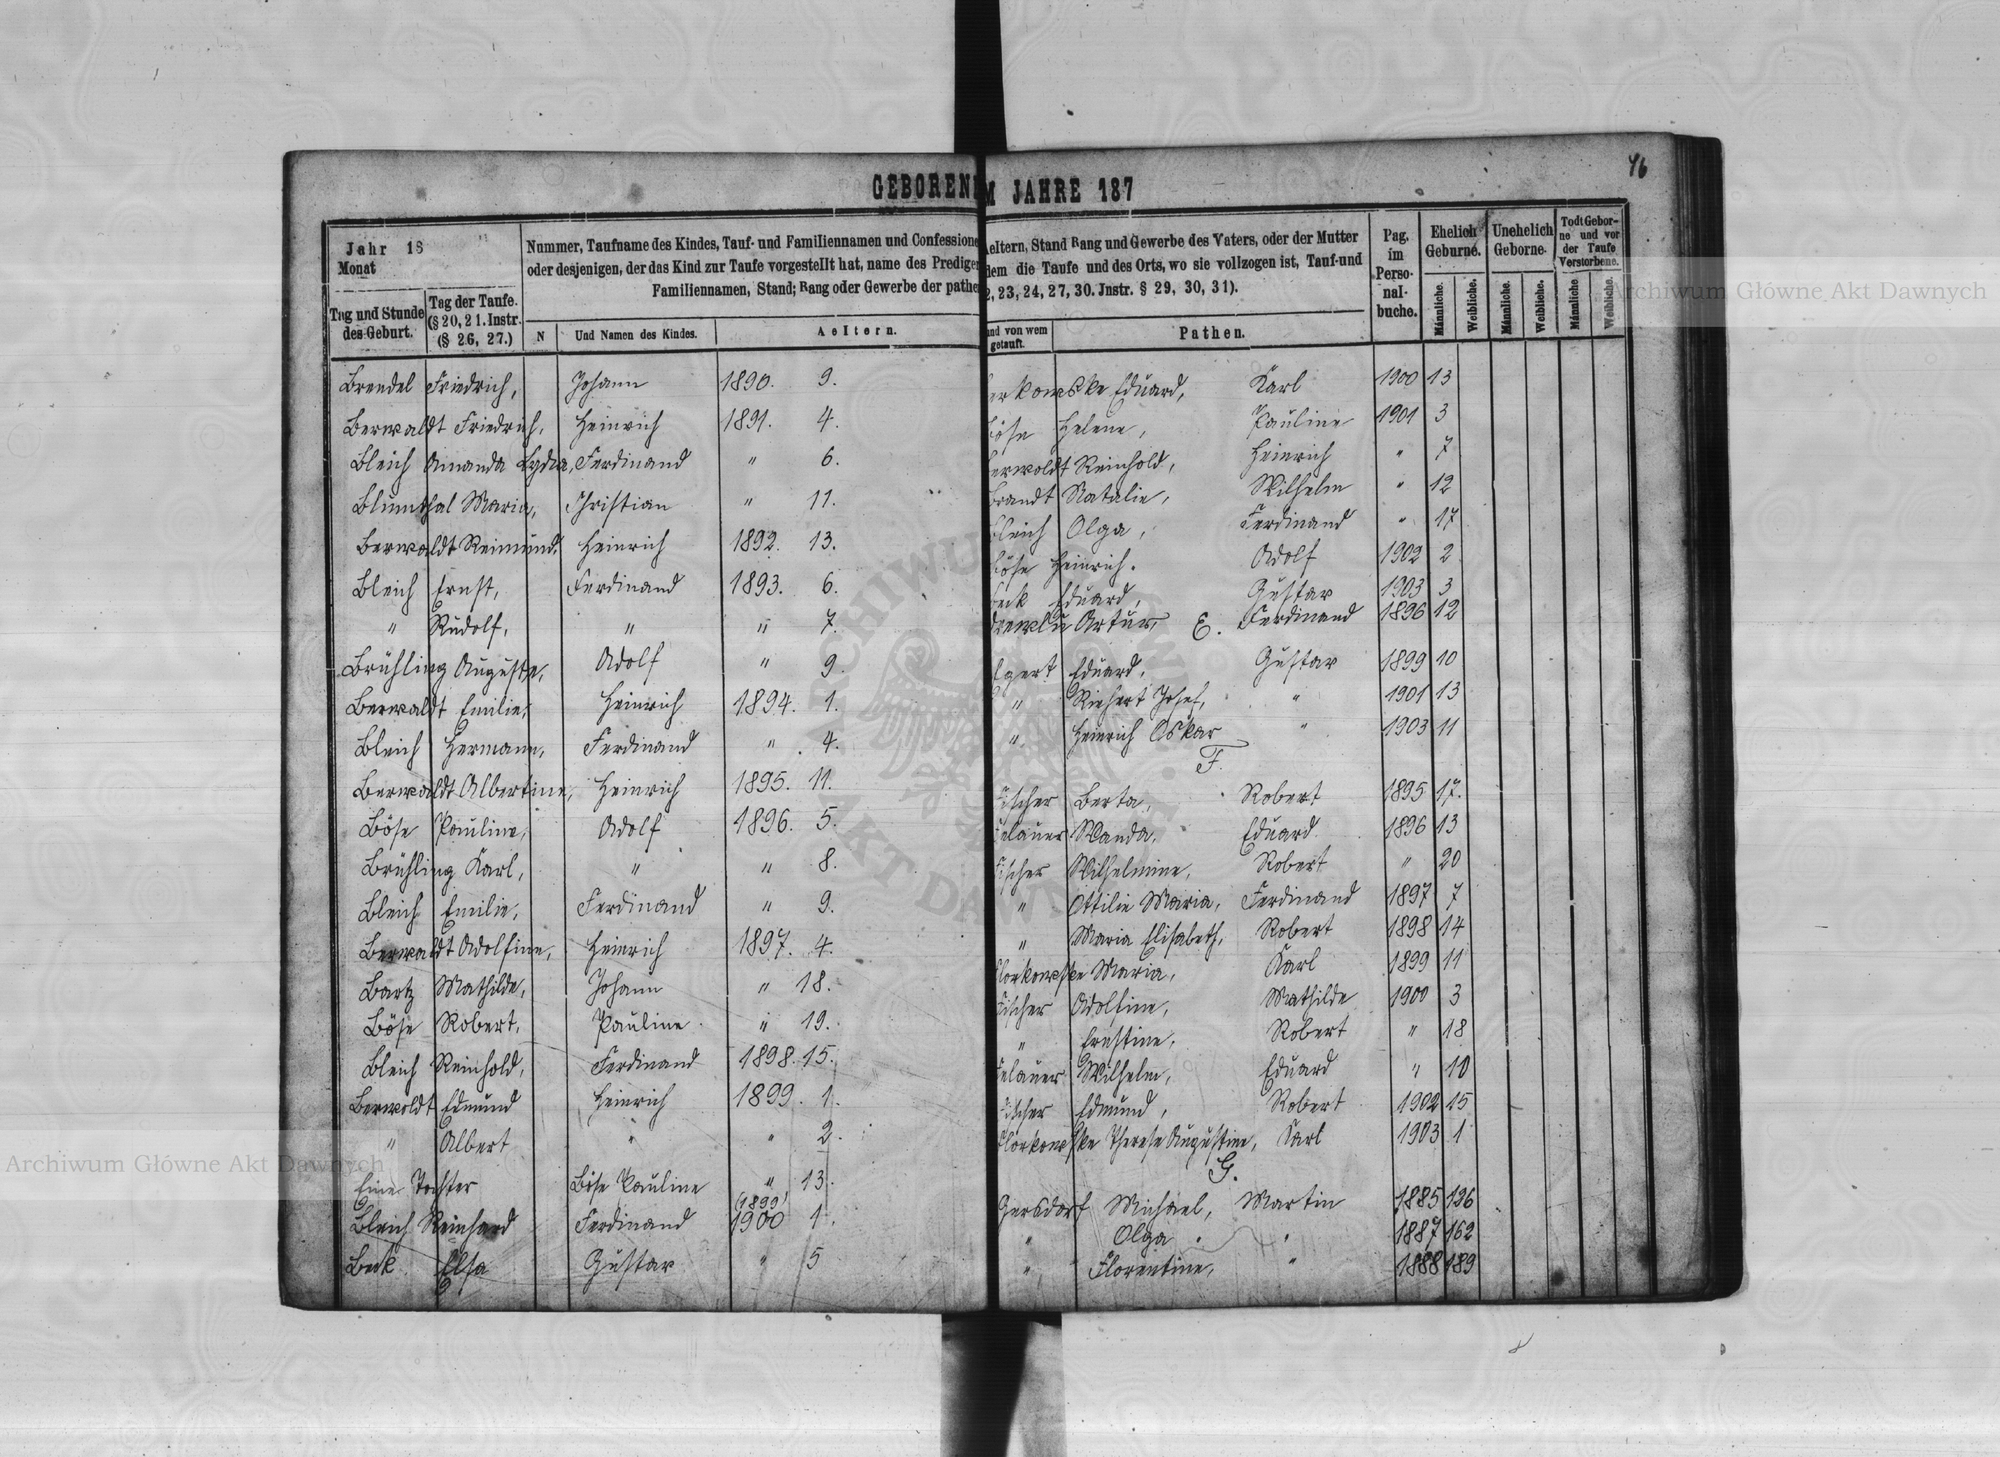 46
GEBORENE
M JAHRE 187
Jahr 18
Monat
Nummer, Taufname des Kindes, Tauf- und Familiennamen und Confessione
oder desjenigen, der das Kind zur Taufe vorgestellt hat, name des Prediger
Familiennamen, Stand; Rang oder Gewerbe der pathe
Tag und Stunde
des Geburt.
Tag der Taufe.
(§ 20, 21. Instr.
(§ 26, 27.)
N
Und Namen des Kindes.
Aeltern.
Brendel Friedrich, Johann 1890. 9.
Berwaldt Friedrich, Heinrich 1891. 4.
Bleich Amanda Lydia, Ferdinand " 6.
Blumthal Maria, Christian " 11.
Berwaldt Reimund, Heinrich 1892. 13.
Bleich Ernst, Ferdinand 1893. 6.
" Rudolf, " " 7.
Brühling Auguste, Adolf " 9.
Berwaldt Emilie, Heinrich 1894. 1.
Bleich Hermann, Ferdinand " 4.
Berwaldt Albertine, Heinrich 1895. 11.
Böse Pauline, Adolf 1896. 5.
Brühling Karl, " " 8.
Bleich Emilie, Ferdinand " 9.
Berwaldt Adolfine, Heinrich 1897. 4.
Bartz Mathilde, Johann " 18.
Böse Robert, Pauline " 19.
Bleich Reinhold, Ferdinand 1898. 15.
Berwoldt Edmund Heinrich 1899. 1.
" Albert " " 2.
Eine Tochter Böse Pauline " 13.
(1899)
Bleich Reinhard Ferdinand 1900 1.
Beck Elsa Gustav " 5
aeltern, Stand Rang und Gewerbe des Vaters, oder der Mutter
dem die Taufe und des Orts, wo sie vollzogen ist, Tauf-und
2, 23, 24, 27, 30. Jnstr. § 29, 30, 31).
und von wem
getauft.
Pathen.
Pag.
im
Perso-
nal-
buche.
Ehelich
Geburne.
Unehelich
Geborne.
Todt Gebor-
ne und vor
der Taufe
Verstorbene.
Männliche.
Weibliche.
Männliche.
Weibliche.
Männliche
Weibliche.
erkowske Eduard, Karl 1900 13
Böse Helene, Pauline 1901 3
erwoldt Reinhold, Heinrich " 7
Brandt Natalie, Wilhelm " 12
Bleich Olga, Ferdinand " 17
Böse Heinrich. Adolf 1902 2
Beck Eduard, Gustav 1903 3
Artur, E. Ferdinand 1896 12
Egert Eduard, Gustav 1899 10
" Richert Josef, " 1901 13
" Heinrich Oskar " 1903 11
F.
Fischer Berta, Robert 1895 17.
elauer Wanda, Eduard 1896 13
Fischer Wilhelmine, Robert " 20
" Ottilie Maria, Ferdinand 1897 7
" Maria Elisabeth, Robert 1898 14
Florkowske Maria, Karl 1899 11
Fischer Adolfine, Mathilde 1900 3
" Ernstine, Robert " 18
elauer Wilhelm, Eduard " 10
Fischer Edmund, Robert 1902 15
Florkowske Therese Augustine, Karl 1903 1
G.
Gersdorf Michael, Martin 1885 126
" Olga " 1887 162
" Florentine, " 1888 189
Archiwum Główne Akt Dawnych
Archiwum Główne Akt Dawnych
ARCHIWUM GŁÓWNE AKT DAWNYCH